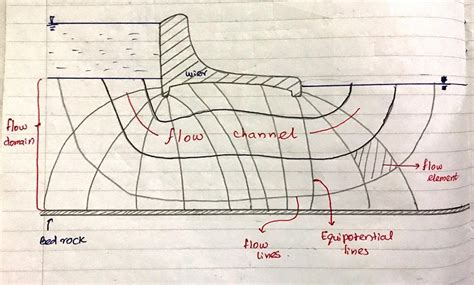 wier
flow channel
flow
domain
flow
element
Bed rock
flow
lines
Equipotential
lines